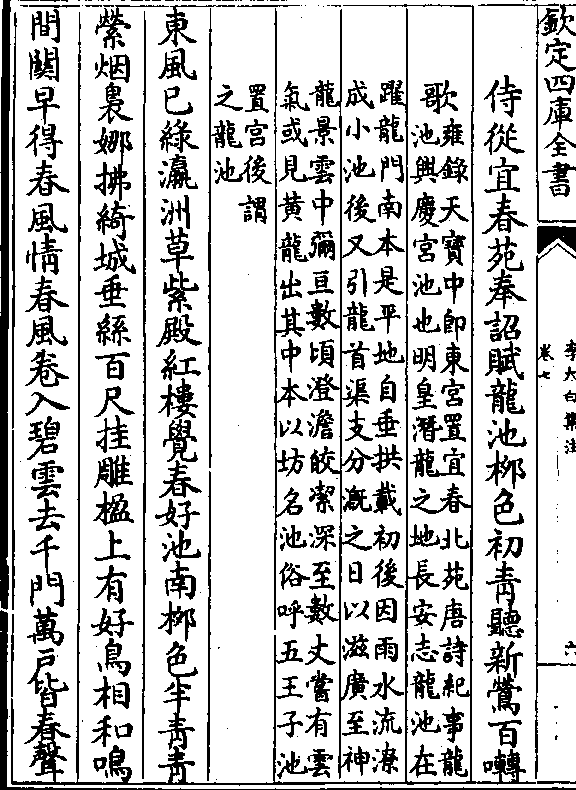 欽定四庫全書
李太白集注
卷七
六
侍從宜春苑奉詔賦龍池栁色初青聽新鶯百囀
歌雍錄天寶中即東宮置宜春北苑唐詩紀事龍
池興慶宮池也明皇潛龍之地長安志龍池在
躍龍門南本是平地自垂拱載初後因雨水流潦
成小池後又引龍首渠支分溉之日以滋廣至神
龍景雲中彌亘數頃澄澹皎潔深至數丈嘗有雲
氣或見黄龍出其中本以坊名池俗呼五王子池
置宮後謂
之龍池
東風已綠瀛洲草紫殿紅樓覺春好池南栁色半青青
縈烟裊娜拂綺城垂絲百尺挂雕楹上有好鳥相和鳴
間關早得春風情春風卷入碧雲去千門萬戶皆春聲